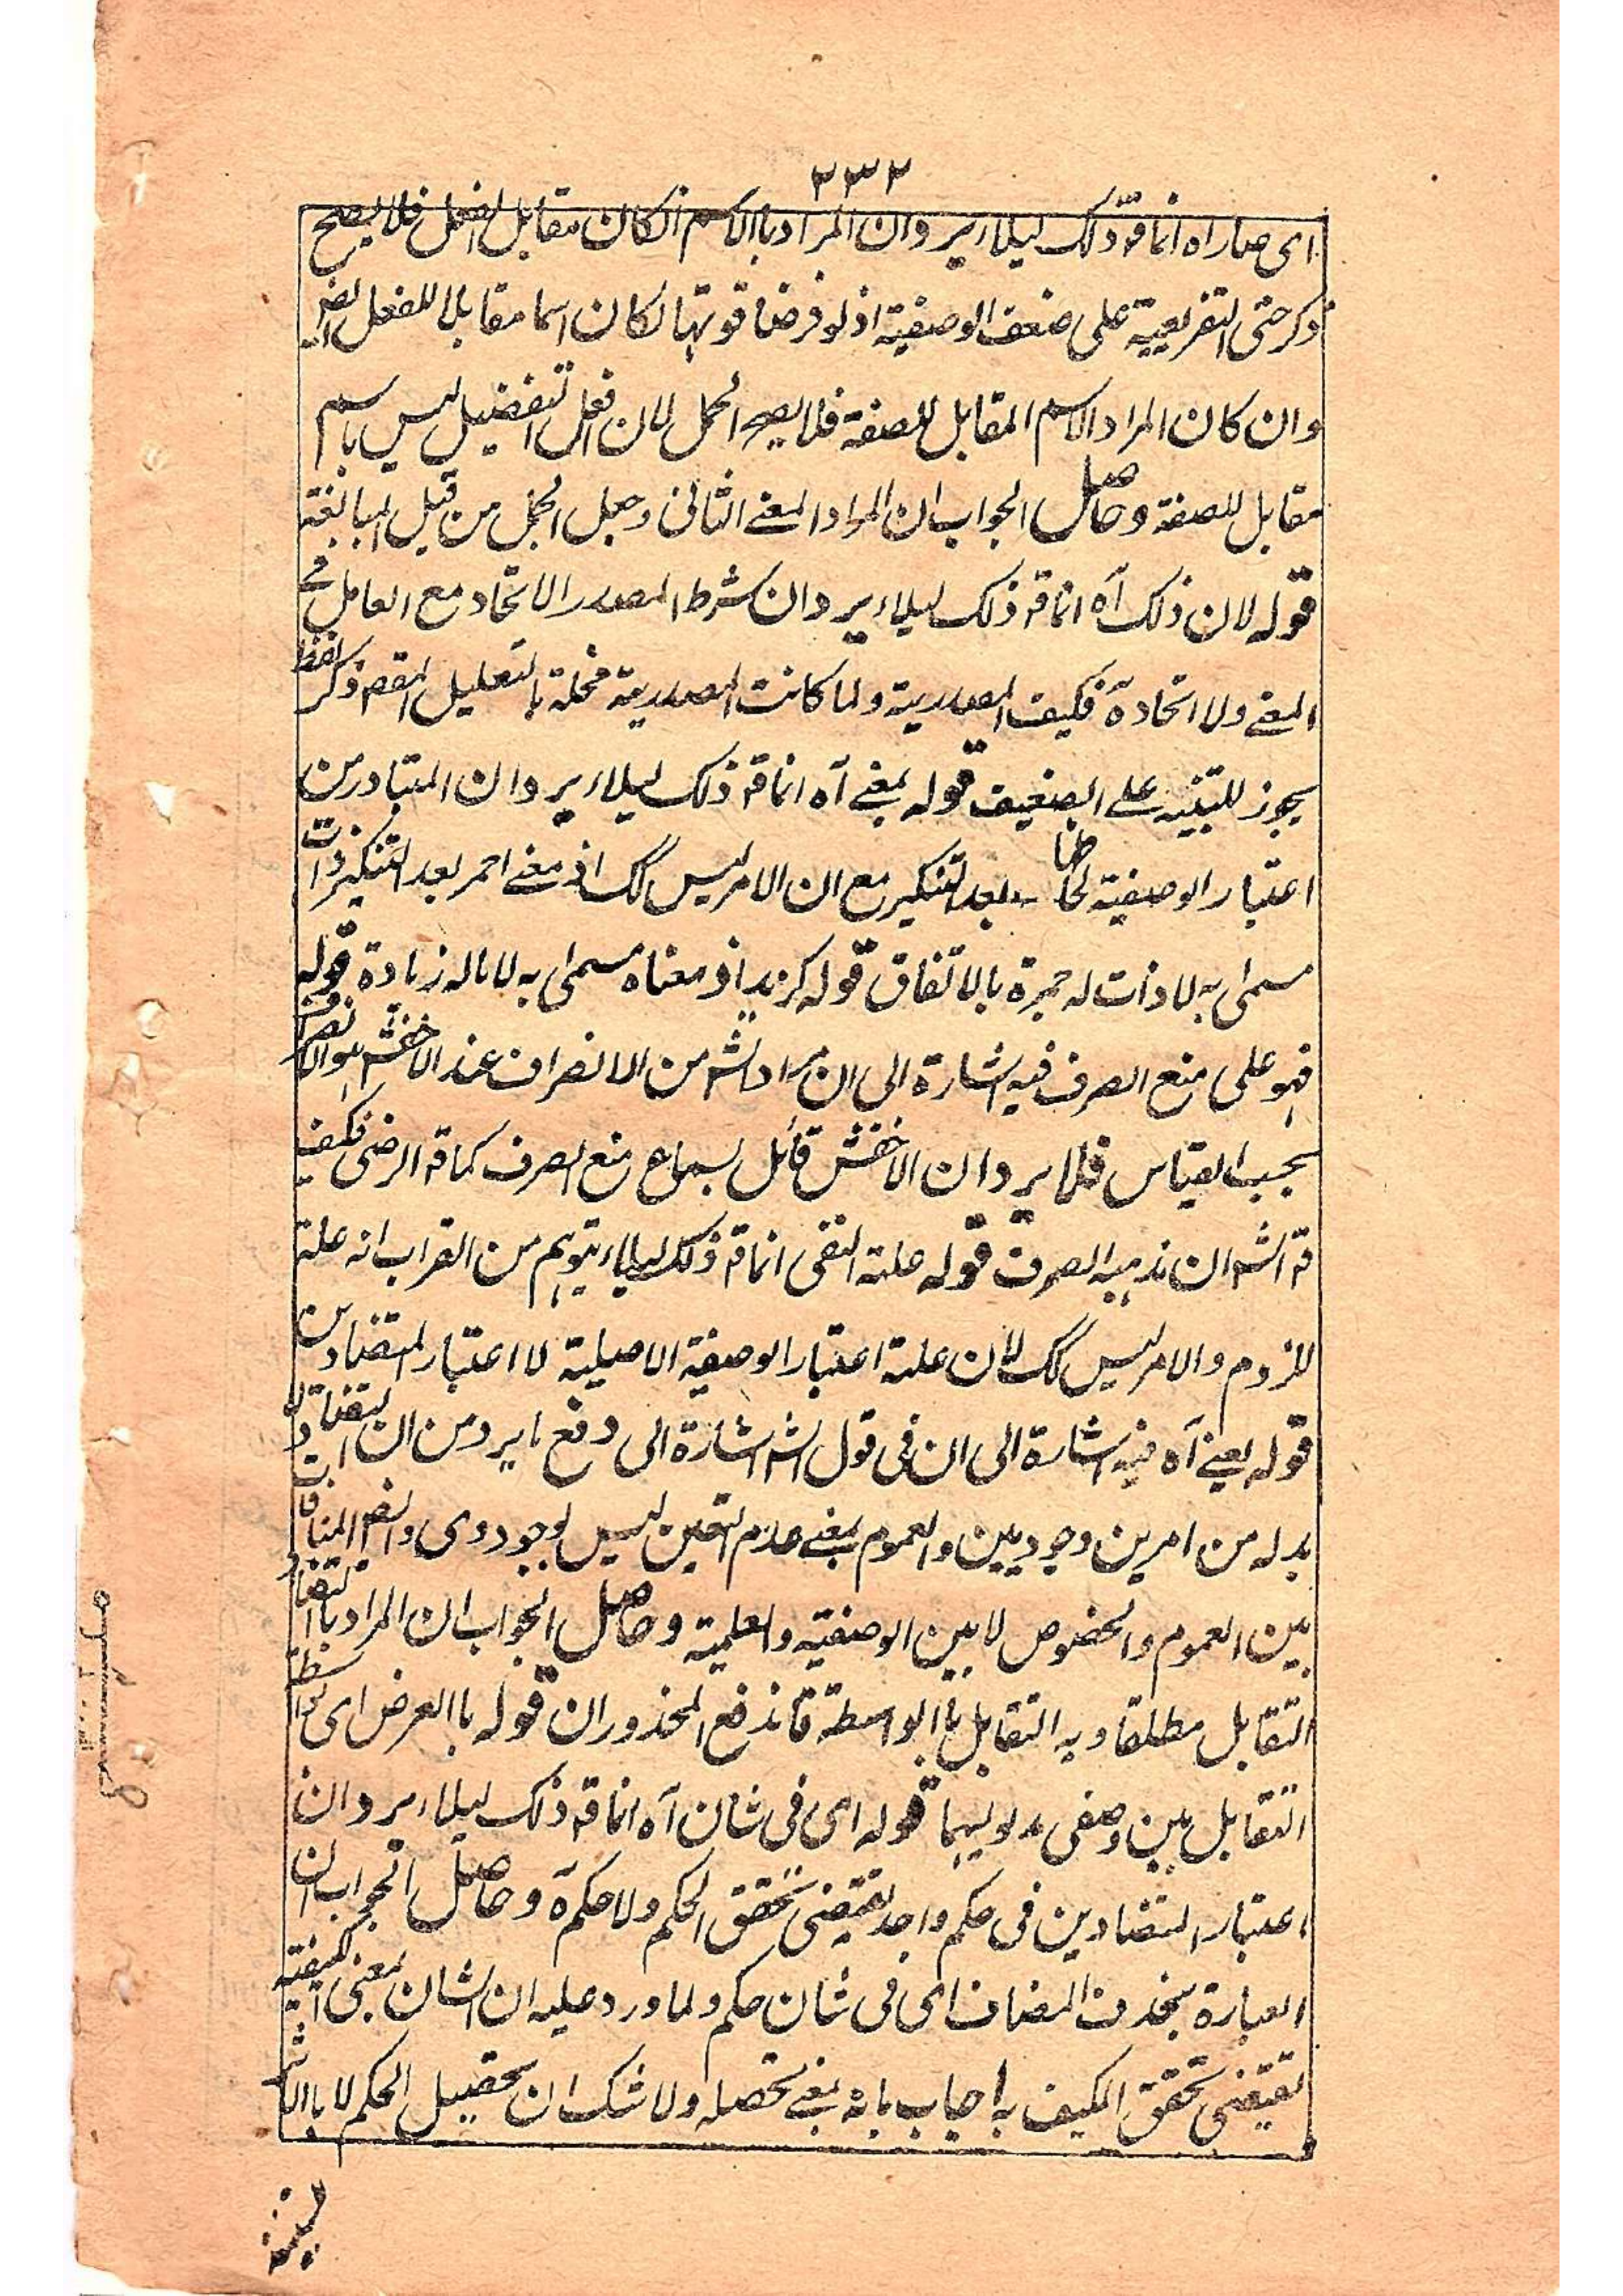 ٢٣٢
ای صاراه انماقه ذلک لیلا یرد ان المراد بالاسم ان کان مقابل الفعل فلا یصح
ذکر حتی التفریعیة علی ضعف الوصفیة اذ لو فرضنا قوتها لکان اسما مقابلا للفعل ایضا
وان کان المراد الاسم المقابل للصفة فلا یصح الحمل لان افعل التفضیل لیس باسم
مقابل للصفة وحاصل الجواب ان المراد المعنے الثانی وجعل الحمل من قبیل المبالغة
قوله لان ذلک آه انماقه ذلک لیلا یرد ان شرط المصدر الاتحاد مع العامل فے
المعنے ولا اتحاد ہ فکیف المصدریة ولما کانت المصدریة مخلة بالتعلیل المقصم ذکر لفظ
یجوز للتنبیه علے الضعیف قوله بمعنے آه انماقه ذلک لیلا یرد ان المتبادر من
اعتبار الوصفیة لحاظها بعد التنکیر مع ان الامر لیس کک اذ معنے احمر بعد التنکیر ذات
مسمی به لا ذات له حمرة بالاتفاق قوله کزید اذ معناه مسمی به لا ماله زیادة قوله
فهو علی منع الصرف فیه اشارة الی ان مراد الشم من الانصراف عند الاخفش هو الانصراف
بحسب القیاس فلا یرد ان الاخفش قائل بسماع منع الصرف کماقه الرضی فکیف
قه الشم ان مذهبه الصرف قوله علة النفی انماقه ذلک لیلا یتوهم من القراب انه علة
للزوم والامر لیس کک لان علة اعتبار الوصفیة الاصلیة لا اعتبار المتضادین
قوله یعنے آه فیه اشارة الی ان فی قول الشم اشارة الی دفع ما یرد من ان التضاد لا
بد له من امرین وجودیین والعموم بمعنے عدم التعین لیس بوجودی وایضا المنافات
بین العموم والخصوص لا بین الوصفیة والعلمیة وحاصل الجواب ان المراد بالتضاد
التقابل مطلقا وبه التقابل بالواسطة فاندفع المحذوران قوله بالعرض ای بواسطة
التقابل بین وصفی مدلولیهما قوله ای فی شان آه انماقه ذلک لیلا یرد ان
اعتبار المتضادین فی حکم واحد یقتضی تحقق الحکم ولا حکم ہ وحاصل الجواب ان
العبارة بحذف المضاف ای فی شان حکم ولما ورد علیه ان الشان بمعنی الکیفیة
یقتضی تحقق المکیف به اجاب بانه بمعنے تحصله ولا شک ان تحصیل الحکم لا بالاثر